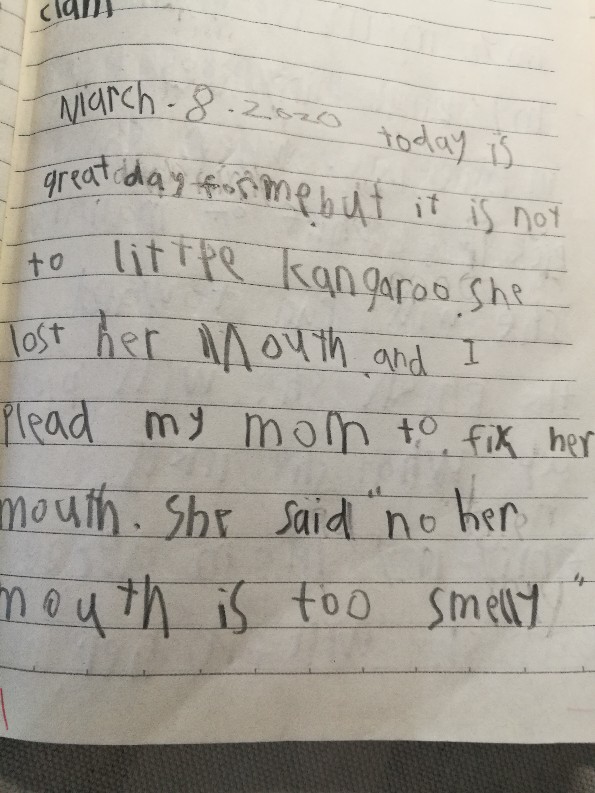 clam
March. 8. 2020 today is
great day for me, but it is not
to little kangaroo. She
lost her Mouth, and I
Plead my mom to. fix her
mouth. She said "no her
mouth is too smelly"